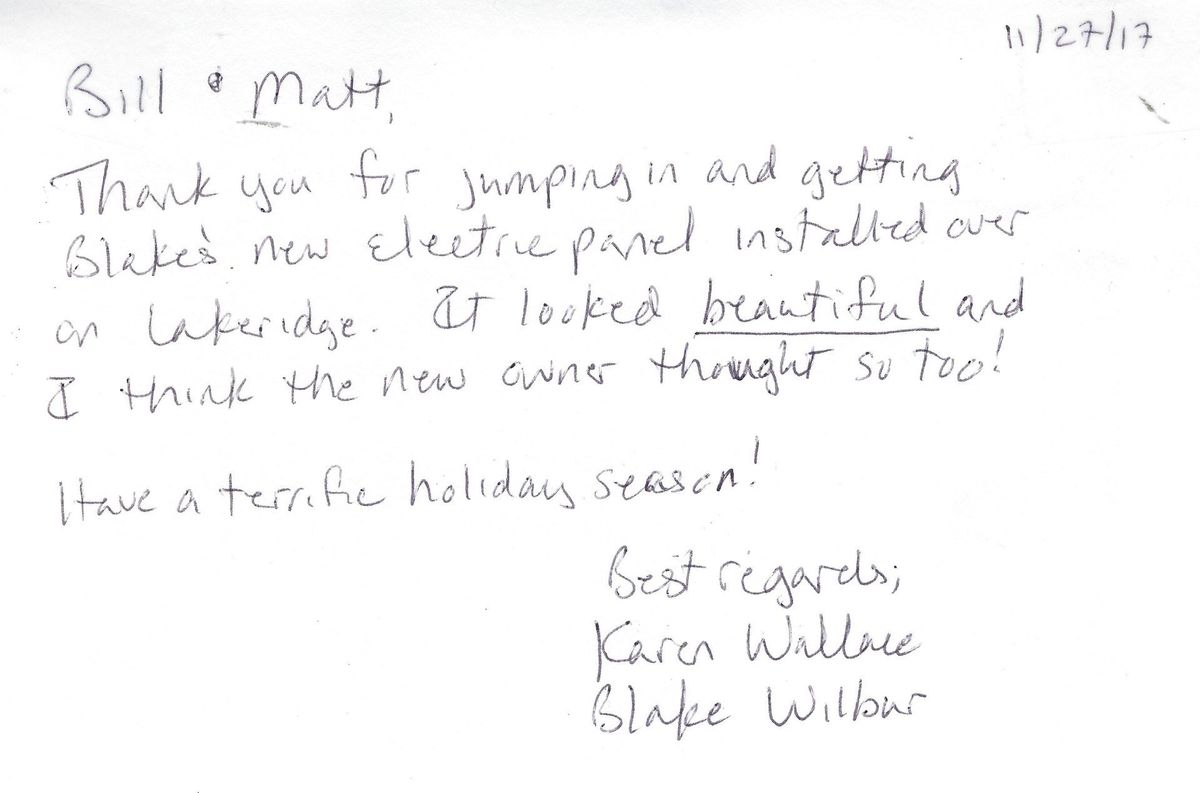 11/27/17
Bill & Matt,
Thank you for jumping in and getting
Blake's new electric panel installed over
on Lakeridge. It looked beautiful and
I think the new owner thought so too!
Have a terrific holiday season!
Best regards,
Karen Wallace
Blake Wilbur